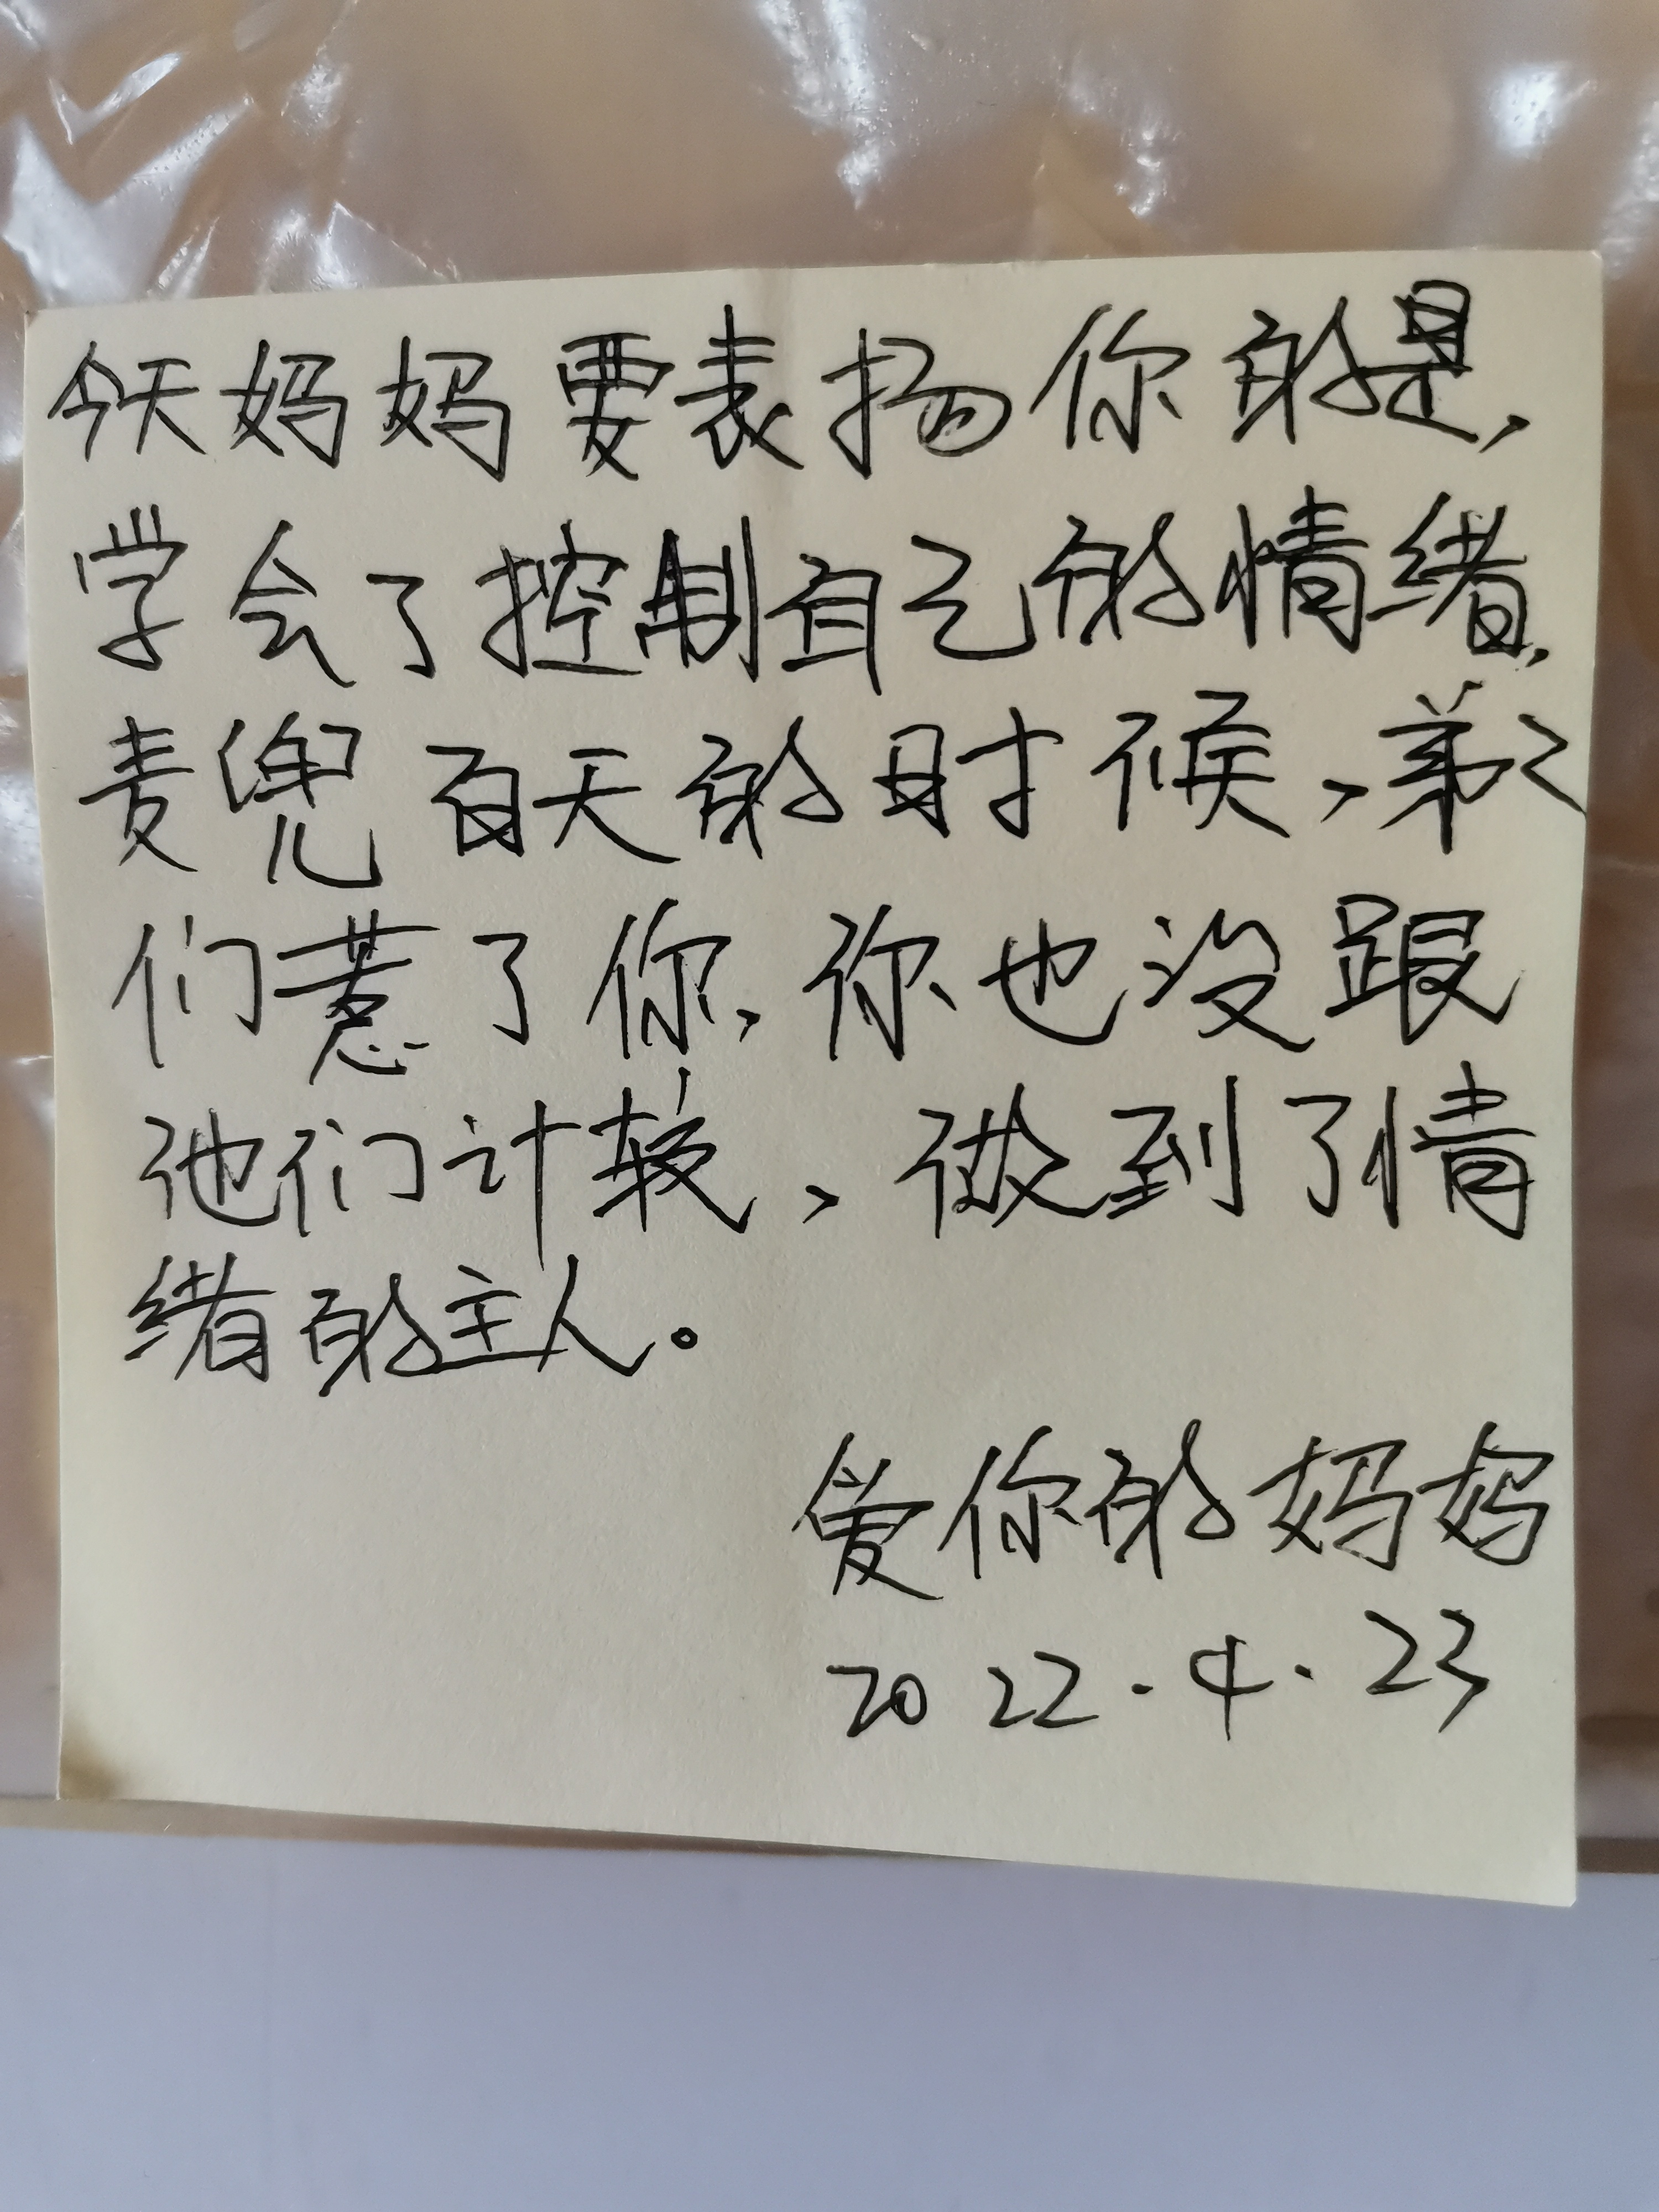 今天妈妈要表扬你的是,
学会了控制自己的情绪,
麦兜百天的时候,弟々
们惹了你,你也没跟
他们计较,做到了情
绪的主人。
爱你的妈妈
2022.4.23